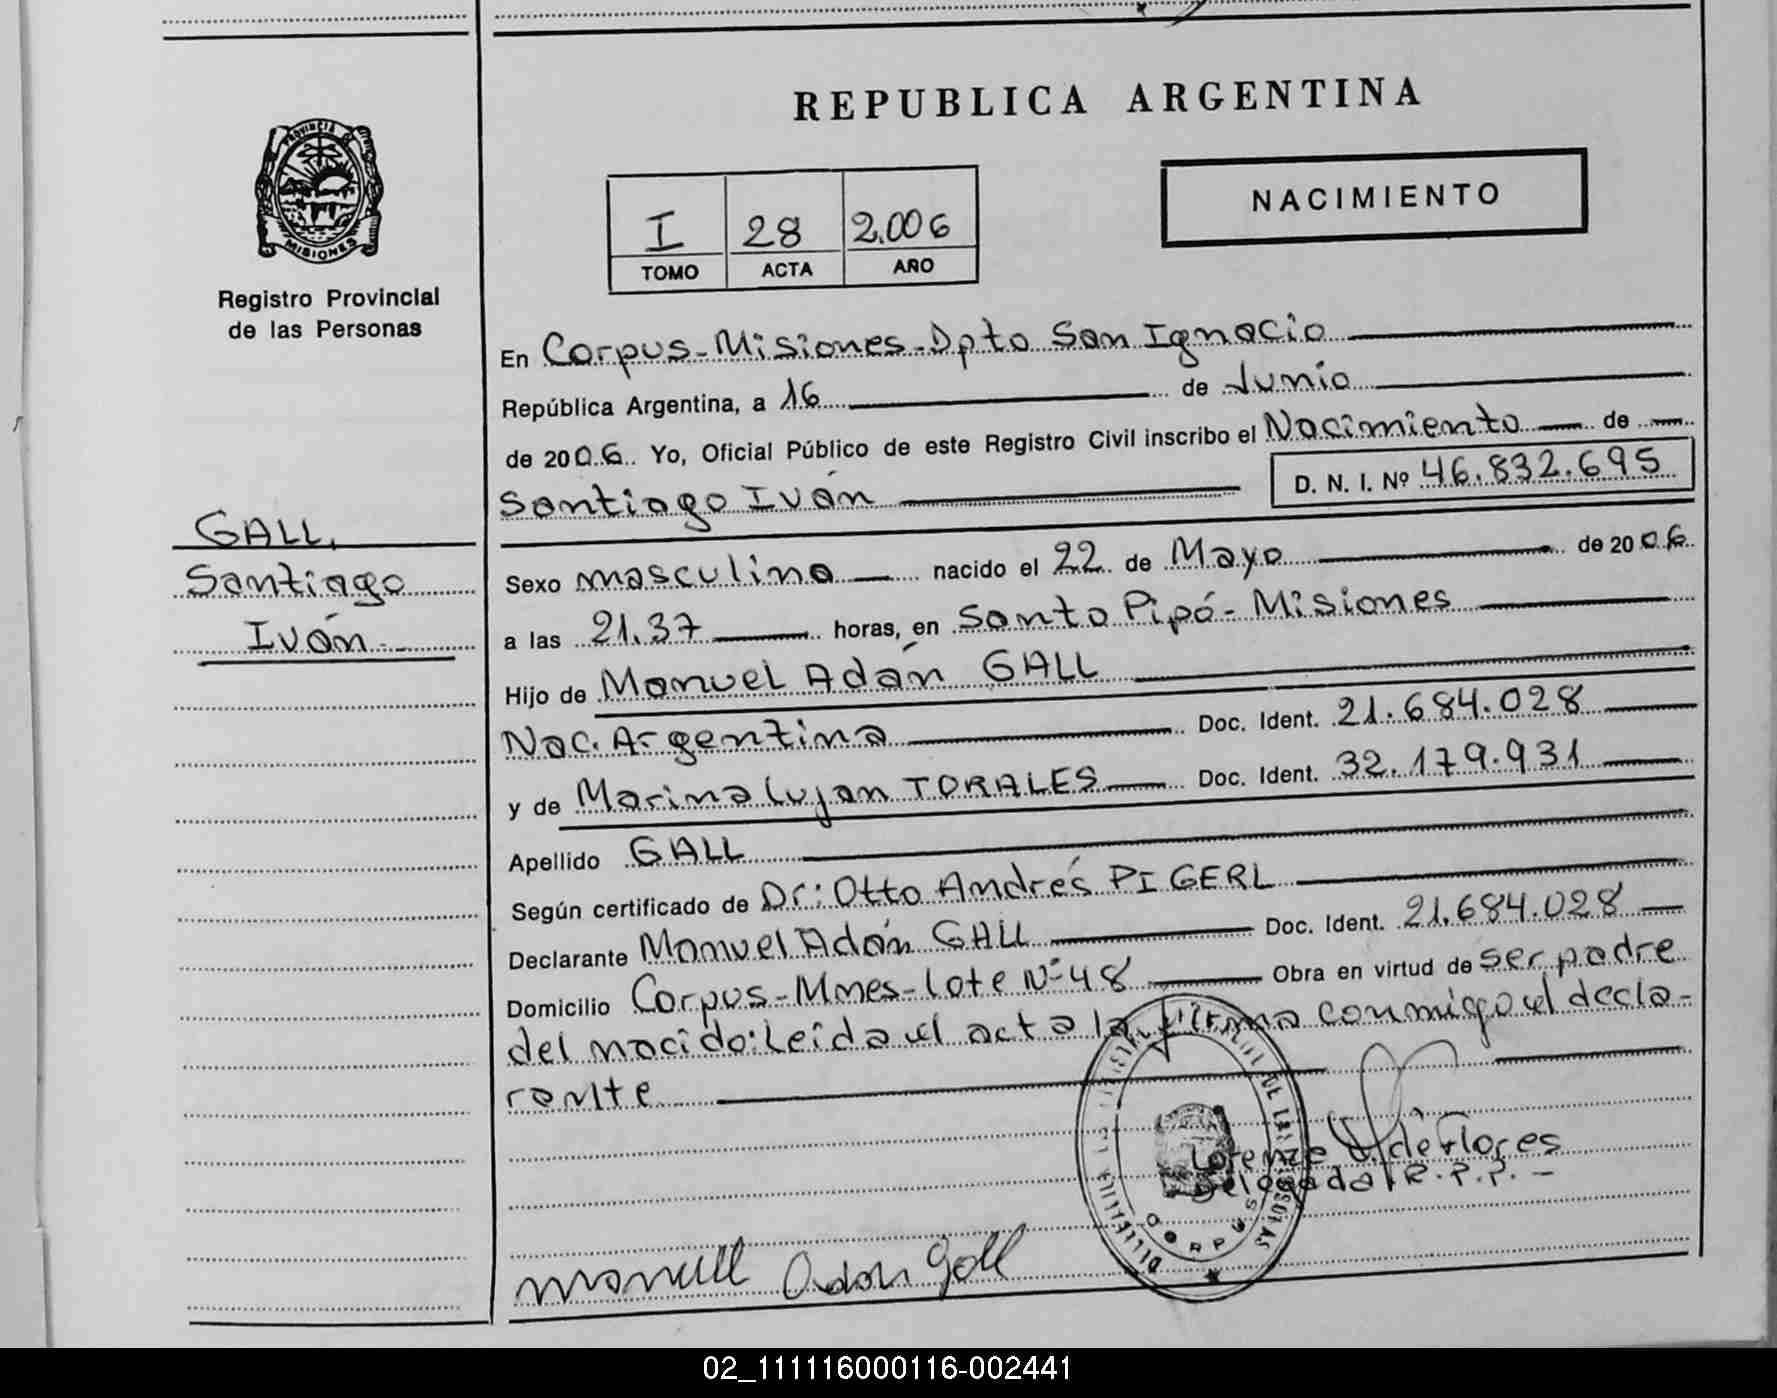 REPUBLICA ARGENTINA
PROVINCIA DE
MISIONES
Registro Provincial
de las Personas
NACIMIENTO
I 28 2.006
TOMO ACTA AÑO
En Corpus-Misiones-Dpto San Ignacio
República Argentina, a 16 de Junio
de 2006. Yo, Oficial Público de este Registro Civil inscribo el Nacimiento de
Santiago Iván D. N. I. Nº 46.832.695
GALL,
Santiago
Iván
Sexo masculino nacido el 22 de Mayo de 2006
a las 21.37 horas, en Santo Pipó-Misiones
Hijo de Manuel Adán GALL
Nac. Argentina Doc. Ident. 21.684.028
y de Marina Lujan TORALES Doc. Ident. 32.179.931
Apellido GALL
Según certificado de Dr: Otto Andrés PIGERL
Declarante Manuel Adán GALL Doc. Ident. 21.684.028
Domicilio Corpus-Mnes-Lote Nº 48 Obra en virtud de ser padre
del nacido: Leida el acta la firma conmigo el decla-
rante
de Flores
Delegada R.P.P.-
CORPUS
Manuell Adan Gall
02_111116000116-002441